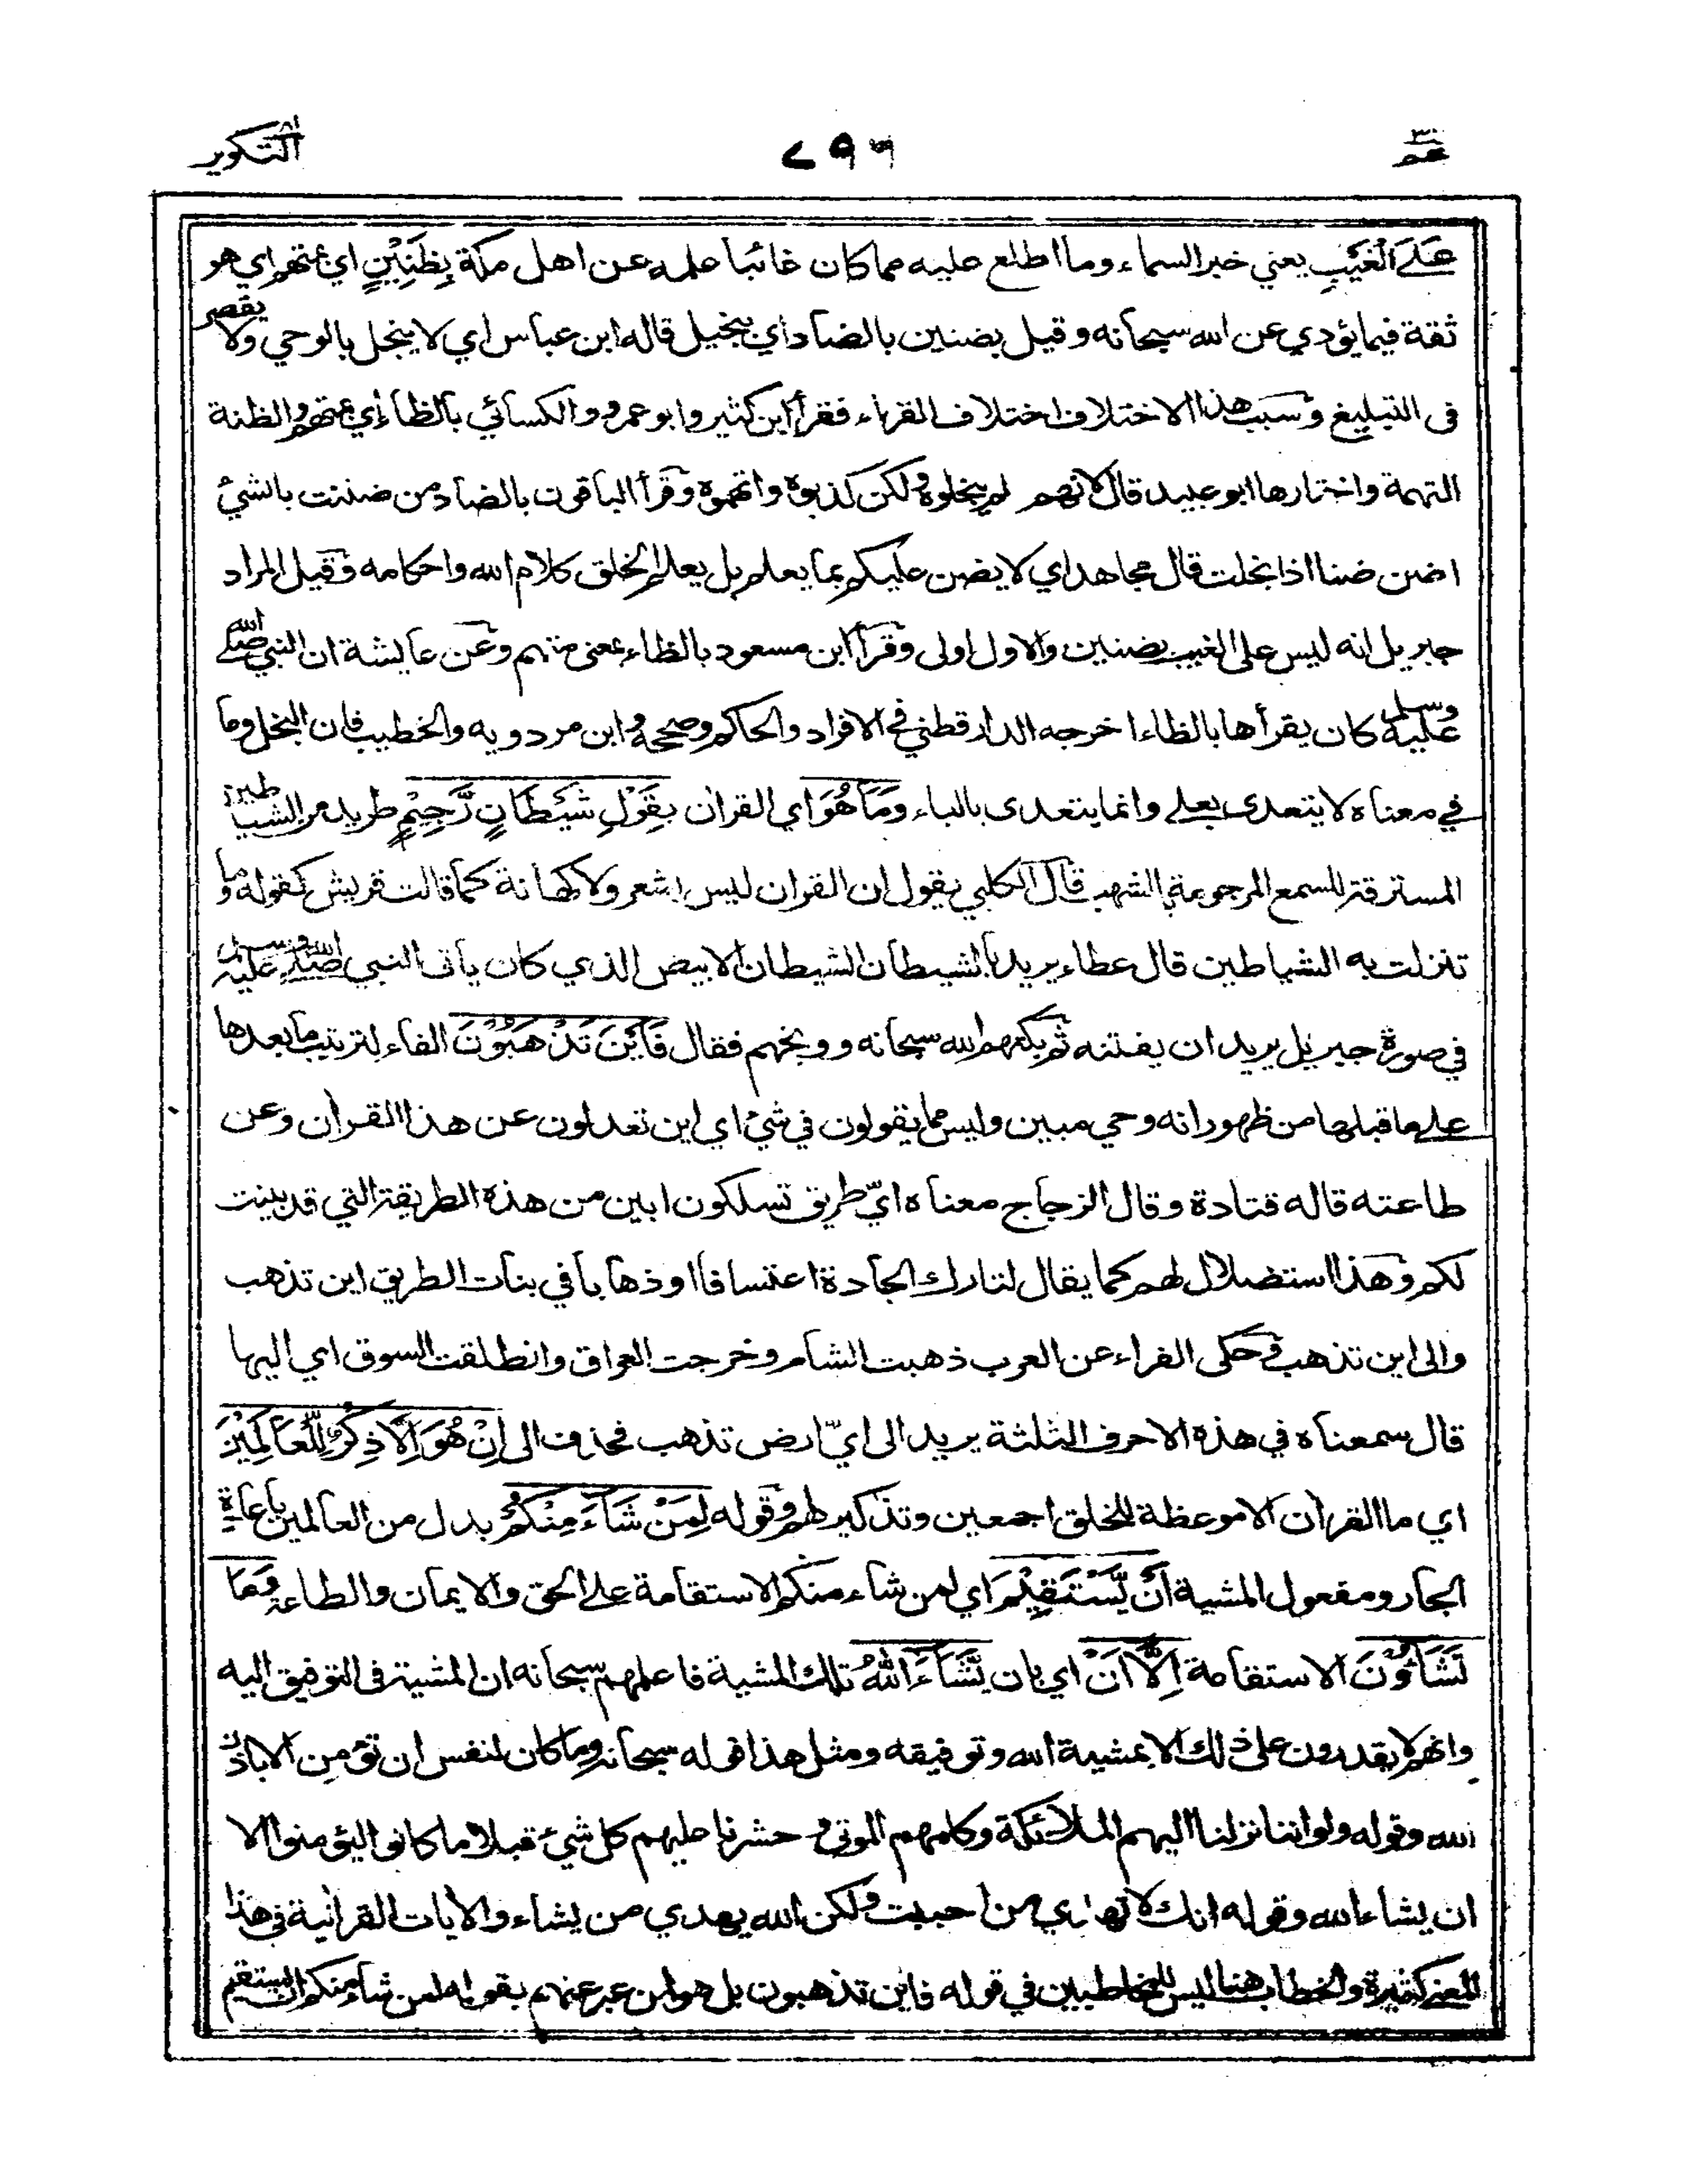 عم ٣٠ ٢٩٦ التكوير ٨١
عَلَى الْغَيْبِ يعني خبر السماء وما اطلع عليه مما كان غائبا علمه عن اهل مكة بِظَنِيْنٍ اي بمتهم اي هو
ثقة فيما يؤدي عن الله سبحانه وقيل بضنين بالضاد اي ببخيل قاله ابن عباس اي لا يبخل بالوحي ولا يقصر
فى التبليغ وسبب هذا الاختلاف اختلاف القراء فقرأ ابن كثير وابو عمرو والكسائي بالظاء اي بمتهم والظنة
التهمة واختارها ابو عبيد قال لانهم لم يبخلوه ولكن كذبوه واتهموه وقرأ الباقون بالضاد من ضننت بالشئ
اضن ضنا اذا بخلت قال مجاهد اي لا يضن عليكم بما يعلم بل يعلم الخلق كلام الله واحكامه وقيل المراد
جبريل انه ليس على الغيب بضنين والاول اولى وقرأ ابن مسعود بالظاء بمعنى متهم وعن عايشة ان النبي صلى الله
عليه وسلم كان يقرأها بالظاء اخرجه الدارقطني في الافراد والحاكم وصححه وابن مردويه والخطيب فان البخل وما
في معناه لا يتعدى بعلى وانما يتعدى بالباء وَمَا هُوَ اي القران بِقَوْلِ شَيْطَانٍ رَّجِيْمٍ طريد من الشياطين
المسترقة للسمع المرجومة بالشهب قال الكلبي يقول ان القران ليس بشعر ولا كهانة كما قالت قريش كقوله وما
تنزلت به الشياطين قال عطاء يريد بالشيطان الشيطان الابيض الذي كان يأتى النبي صلى الله عليه وسلم
في صورة جبريل يريد ان يفتنه ثم بكتهم الله سبحانه ووبخهم فقال فَاَيْنَ تَذْهَبُوْنَ الفاء لترتيب ما بعدها
على ما قبلها من ظهور انه وحي مبين وليس مما يقولون في شئ اي اين تعدلون عن هذا القران وعن
طاعته قاله قتادة وقال الزجاج معناه ايّ طريق تسلكون ابين من هذه الطريقة التي قد بينت
لكم وهذا استضلال لهم كما يقال لتارك الجادة اعتسافا او ذهابا في بنات الطريق اين تذهب
والى اين تذهب وحكى الفراء عن العرب ذهبت الشام وخرجت العراق وانطلقت السوق اي اليها
قال سمعناه في هذه الاحرف الثلثة يريد الى ايّ ارض تذهب فحذف الى اِنْ هُوَ اِلَّا ذِكْرٌ لِّلْعَالَمِيْنَ
اي ما القرأن الا موعظة للخلق اجمعين وتذكير لهم وقوله لِمَنْ شَاءَ مِنْكُمْ بدل من العالمين باعادة
الجار ومفعول المشية اَنْ يَّسْتَقِيْمَ اي لمن شاء منكم الاستقامة على الحق والايمان والطاعة وَمَا
تَشَاؤُنَ الاستقامة اِلَّا اَنْ اي بان يَّشَاءَ اللهُ تلك المشية فاعلمهم سبحانه ان المشية فى التوفيق اليه
وانهم لا يقدرون على ذلك الا بمشية الله وتوفيقه ومثل هذا قوله سبحانه وما كان لنفس ان تؤمن الا باذن
الله وقوله ولو اننا نزلنا اليهم الملائكة وكلمهم الموتى وحشرنا عليهم كل شئ قبلا ما كانوا ليؤمنوا الا
ان يشاء الله وقوله انك لا تهدي من احببت ولكن الله يهدي من يشاء والايات القرانية فى هذا
المعنى كثيرة والخطاب هنا ليس للمخاطبين في قوله فاين تذهبون بل هو لمن عبر عنهم بقوله لمن شاء منكم ان يستقيم